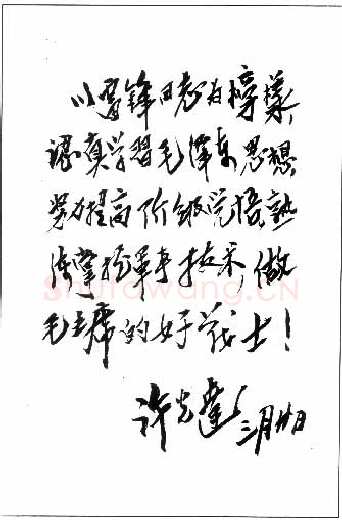 以雷锋同志为榜樣,
認真学習毛泽东思想,
努力提高阶级觉悟,熟
练掌握軍事技术,做
毛主席的好战士!
许光達 三月廿日
Shufawang.CN